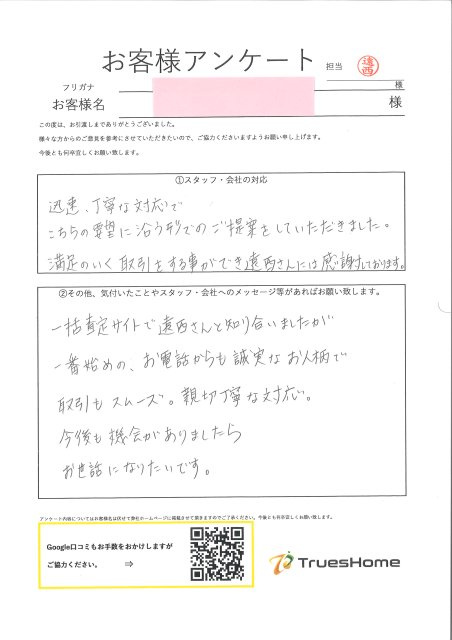 お客様アンケート
担当
遠西
フリガナ
様
お客様名
様
この度は、お引渡しまでありがとうございました。
様々な方からのご意見を参考にさせていただきたいので、ご協力くださいますようお願い申し上げます。
今後とも何卒宜しくお願い致します。
①スタッフ・会社の対応
迅速、丁寧な対応で
こちらの要望に沿う形でのご提案をしていただきました。
満足のいく取引をする事ができ遠西さんには感謝しております。
②その他、気付いたことやスタッフ・会社へのメッセージ等があればお願い致します。
一括査定サイトで遠西さんと知り合いましたが
一番始めの、お電話からも誠実なお人柄で
取引もスムーズ。親切丁寧な対応。
今後も機会がありましたら
お世話になりたいです。
アンケート内容についてはお客様名は伏せて弊社ホームページに掲載させて頂きますのでご了承ください。今後とも何卒宜しくお願い致します。
Google口コミもお手数をおかけしますが
ご協力ください。 ⇒
TruesHome